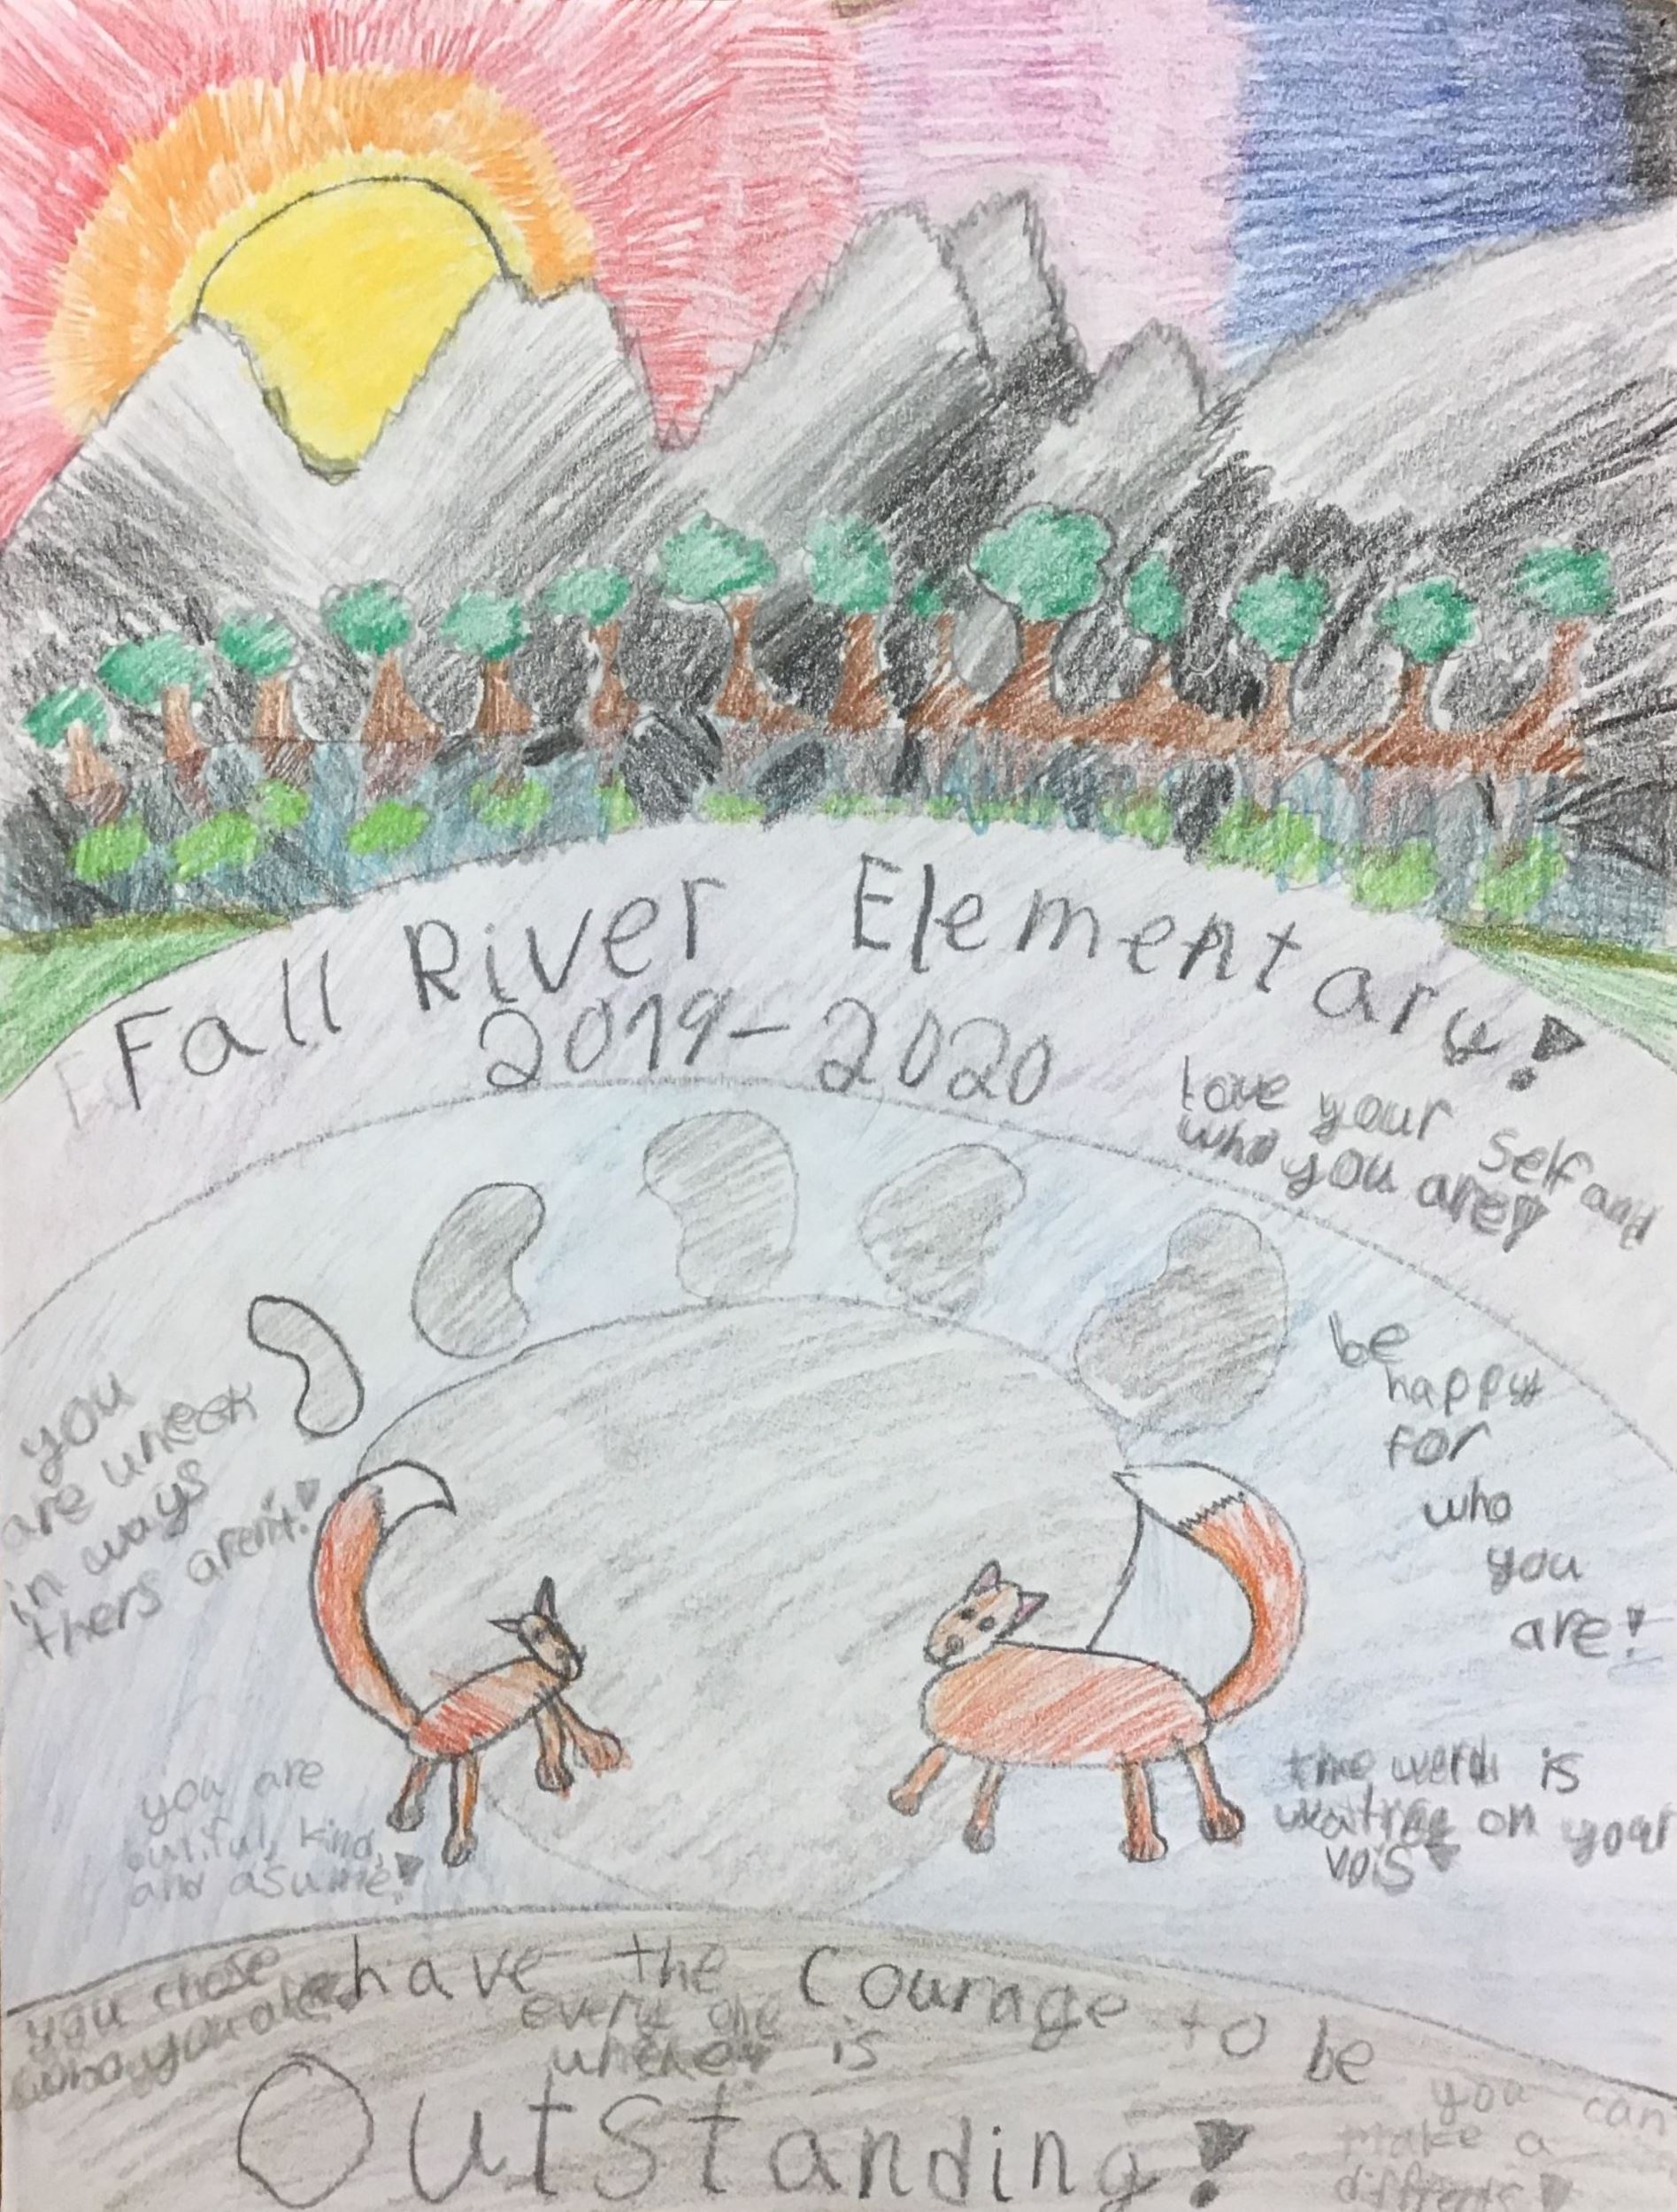 Fall River Elementary!
2019-2020
Love your self and
who you are!
you
are uneek
in ways
thers arent!
be
happy
for
who
you
are!
you are
butiful, kind,
and asume!
the werld is
wating on your
vois
you chose
who you are
have the Courage to be
every one
is
Outstanding!
you can
make a